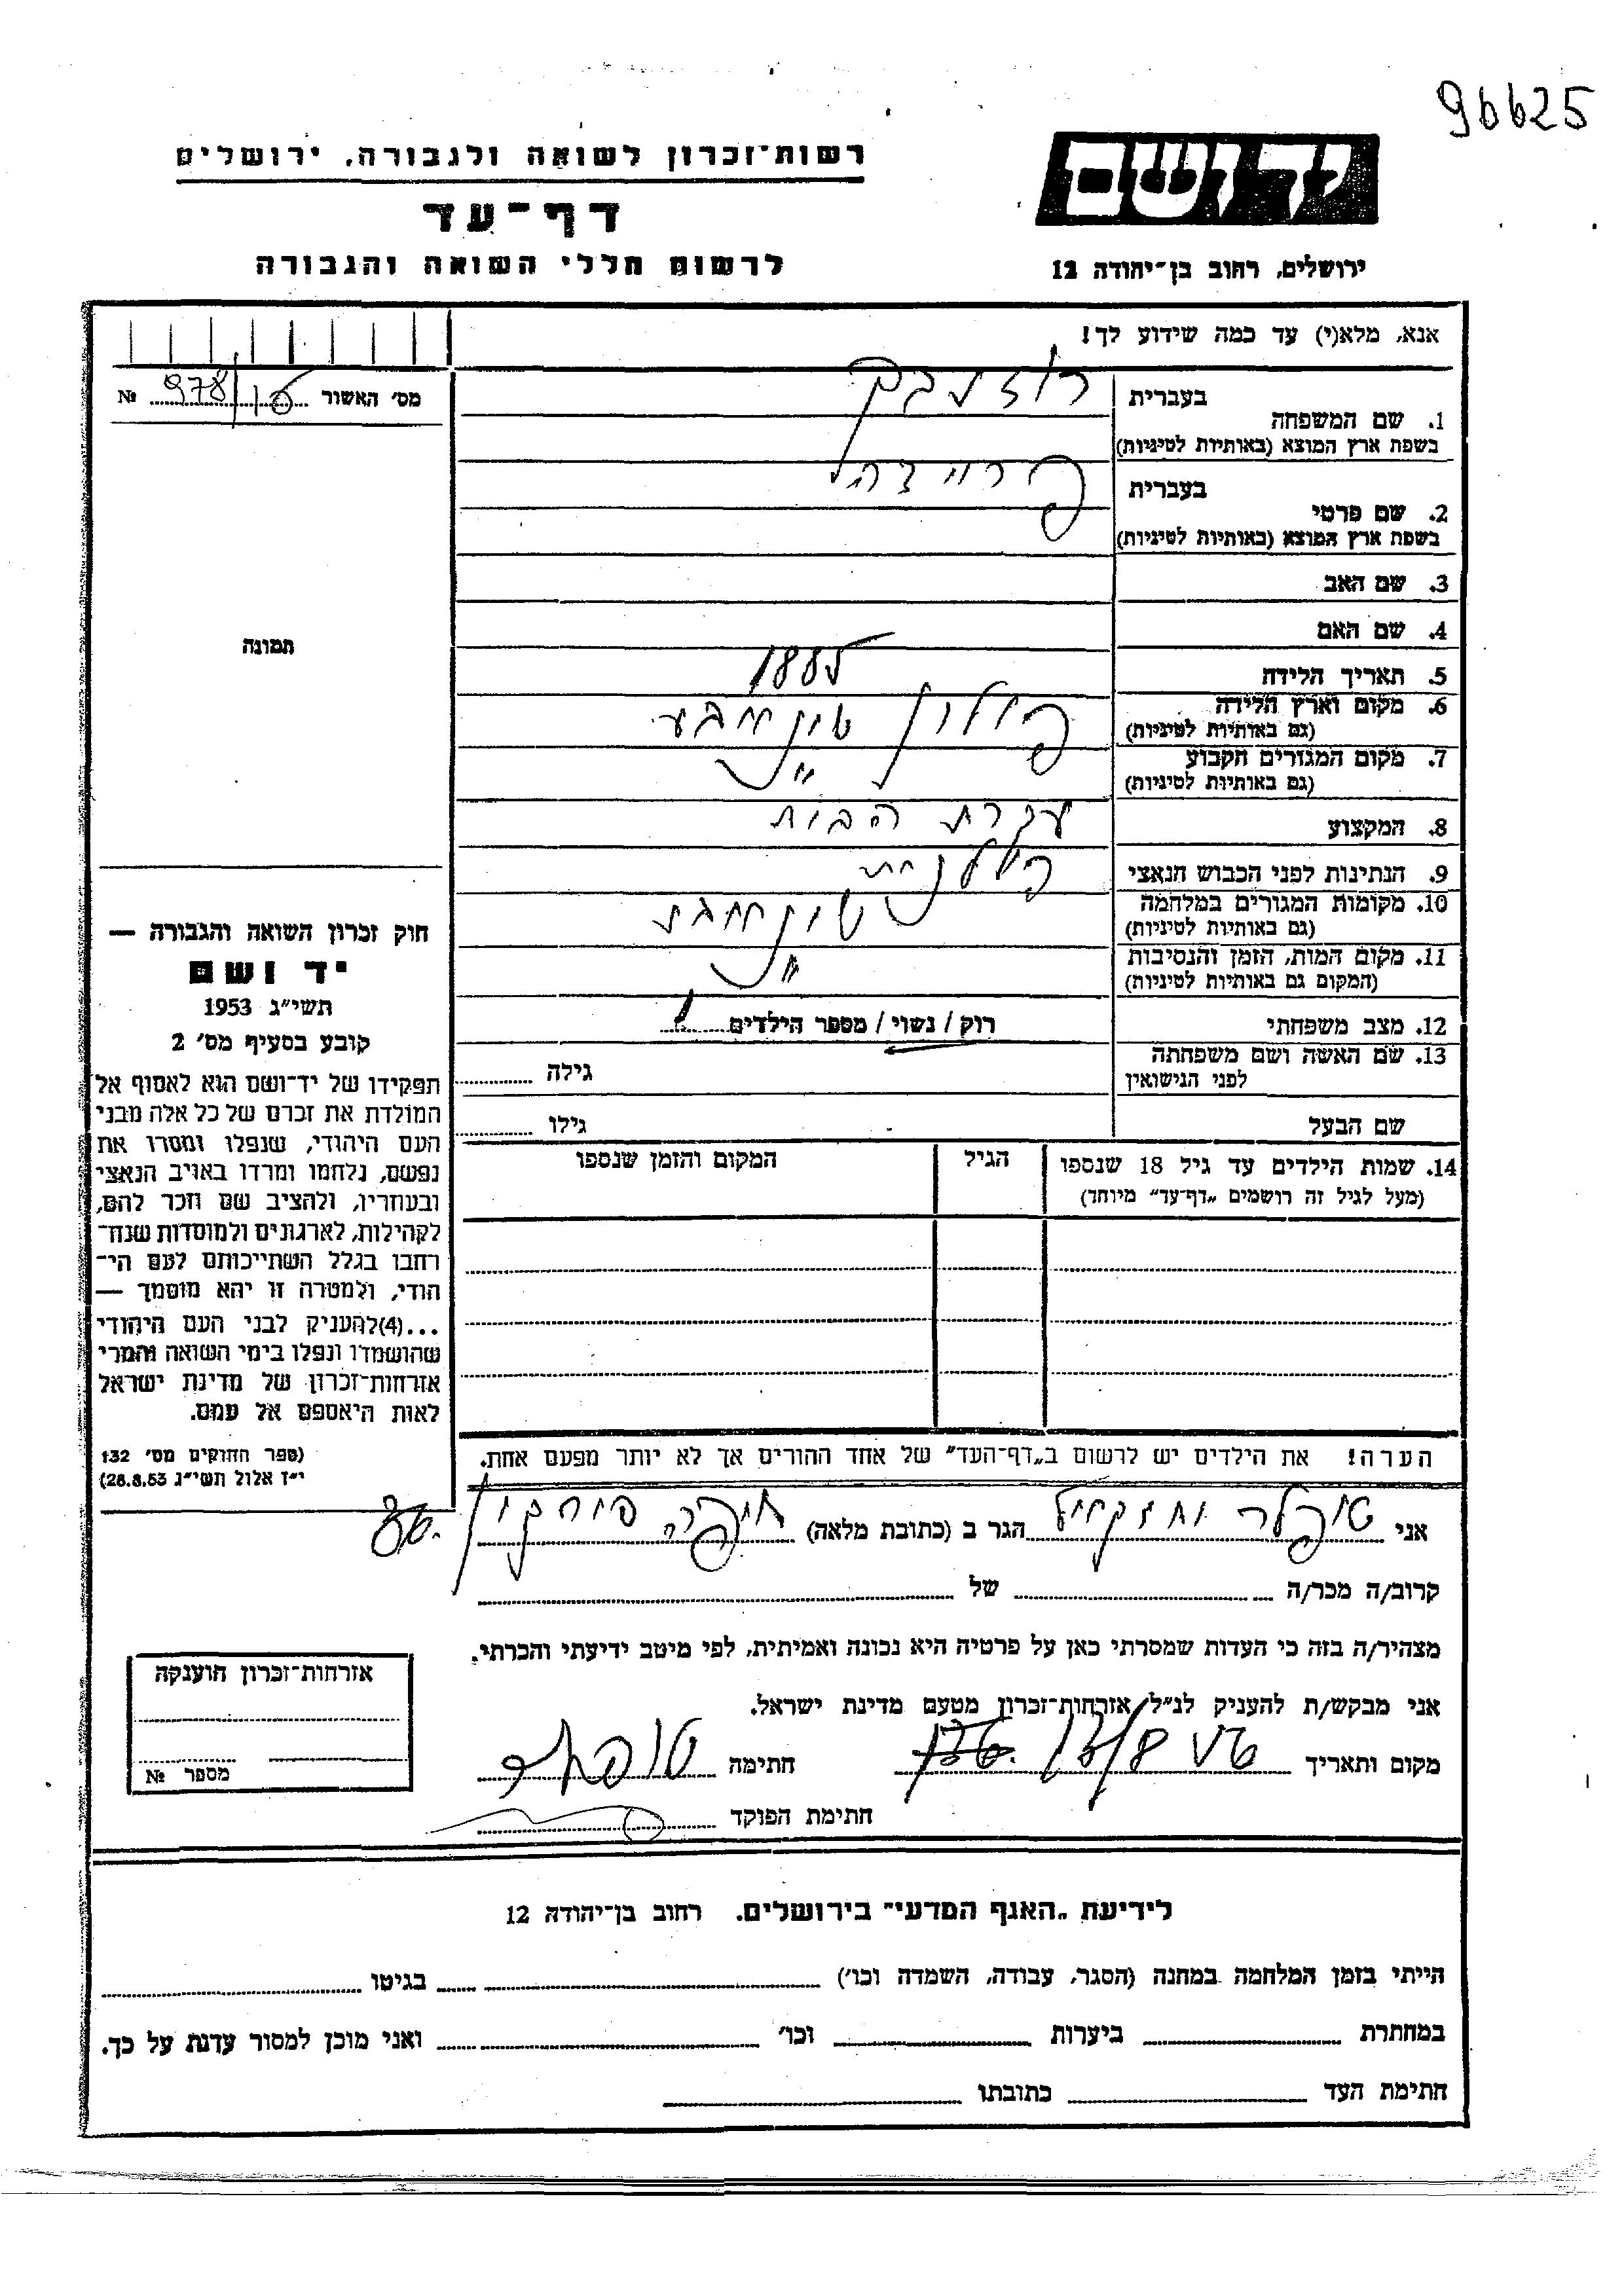 96625
רשות־זכרון לשואה ולגבורה, ירושלים
יד ושם
דף־עד
לרשום חללי השואה והגבורה
ירושלים, רחוב בן־יהודה 12
אנא, מלא(י) עד כמה שידוע לך!
מס׳ האשור 978/ №
בעברית
1. שם המשפחה
בשפת ארץ המוצא (באותיות לטיניות)
בעברית פרוידה
2. שם פרטי
בשפת ארץ המוצא (באותיות לטיניות)
3. שם האב
4. שם האם
תמונה
5. תאריך הלידה 1885
6. מקום וארץ הלידה פולין
(גם באותיות לטיניות)
7. מקום המגורים הקבוע ״
(גם באותיות לטיניות)
8. המקצוע עקרת הבית
9. הנתינות לפני הכבוש הנאצי פולנית
10. מקומות המגורים במלחמה
(גם באותיות לטיניות)
11. מקום המות, הזמן והנסיבות ״
(המקום גם באותיות לטיניות)
12. מצב משפחתי רוק / נשוי / מספר הילדים
13. שם האשה ושם משפחתה
לפני הנישואין גילה
שם הבעל גילו
14. שמות הילדים עד גיל 18 שנספו הגיל המקום והזמן שנספו
(מעל לגיל זה רושמים „דף־עד״ מיוחד)
חוק זכרון השואה והגבורה —
יד ושם
תשי״ג 1953
קובע בסעיף מס׳ 2
תפקידו של יד־ושם הוא לאסוף אל
המולדת את זכרם של כל אלה מבני
העם היהודי, שנפלו ומסרו את
נפשם, נלחמו ומרדו באויב הנאצי
ובעוזריו, ולהציב שם וזכר להם,
לקהילות, לארגונים ולמוסדות שנח־
רחבו בגלל השתייכותם לעם הי־
הודי, ולמטרה זו יהא מוסמך —
...(4)להעניק לבני העם היהודי
שהושמדו ונפלו בימי השואה והמרי
אזרחות־זכרון של מדינת ישראל
לאות היאספם אל עמם.
(ספר החוקים מס׳ 132
י״ז אלול תשי״ג 28.8.53)
הערה! את הילדים יש לרשום ב„דף־העד״ של אחד ההורים אך לא יותר מפעם אחת.
אני הגר ב (כתובת מלאה)
קרוב/ה מכר/ה של
מצהיר/ה בזה כי העדות שמסרתי כאן על פרטיה היא נכונה ואמיתית, לפי מיטב ידיעתי והכרתי.
אני מבקש/ת להעניק לנ״ל אזרחות־זכרון מטעם מדינת ישראל.
מקום ותאריך חתימה
חתימת הפוקד
אזרחות־זכרון הוענקה
מספר №
לידיעת „האגף המדעי״ בירושלים. רחוב בן־יהודה 12
הייתי בזמן המלחמה במחנה (הסגר, עבודה, השמדה וכו׳) בגיטו
במחתרת ביערות וכו׳ ואני מוכן למסור עדות על כך.
חתימת העד כתובתו